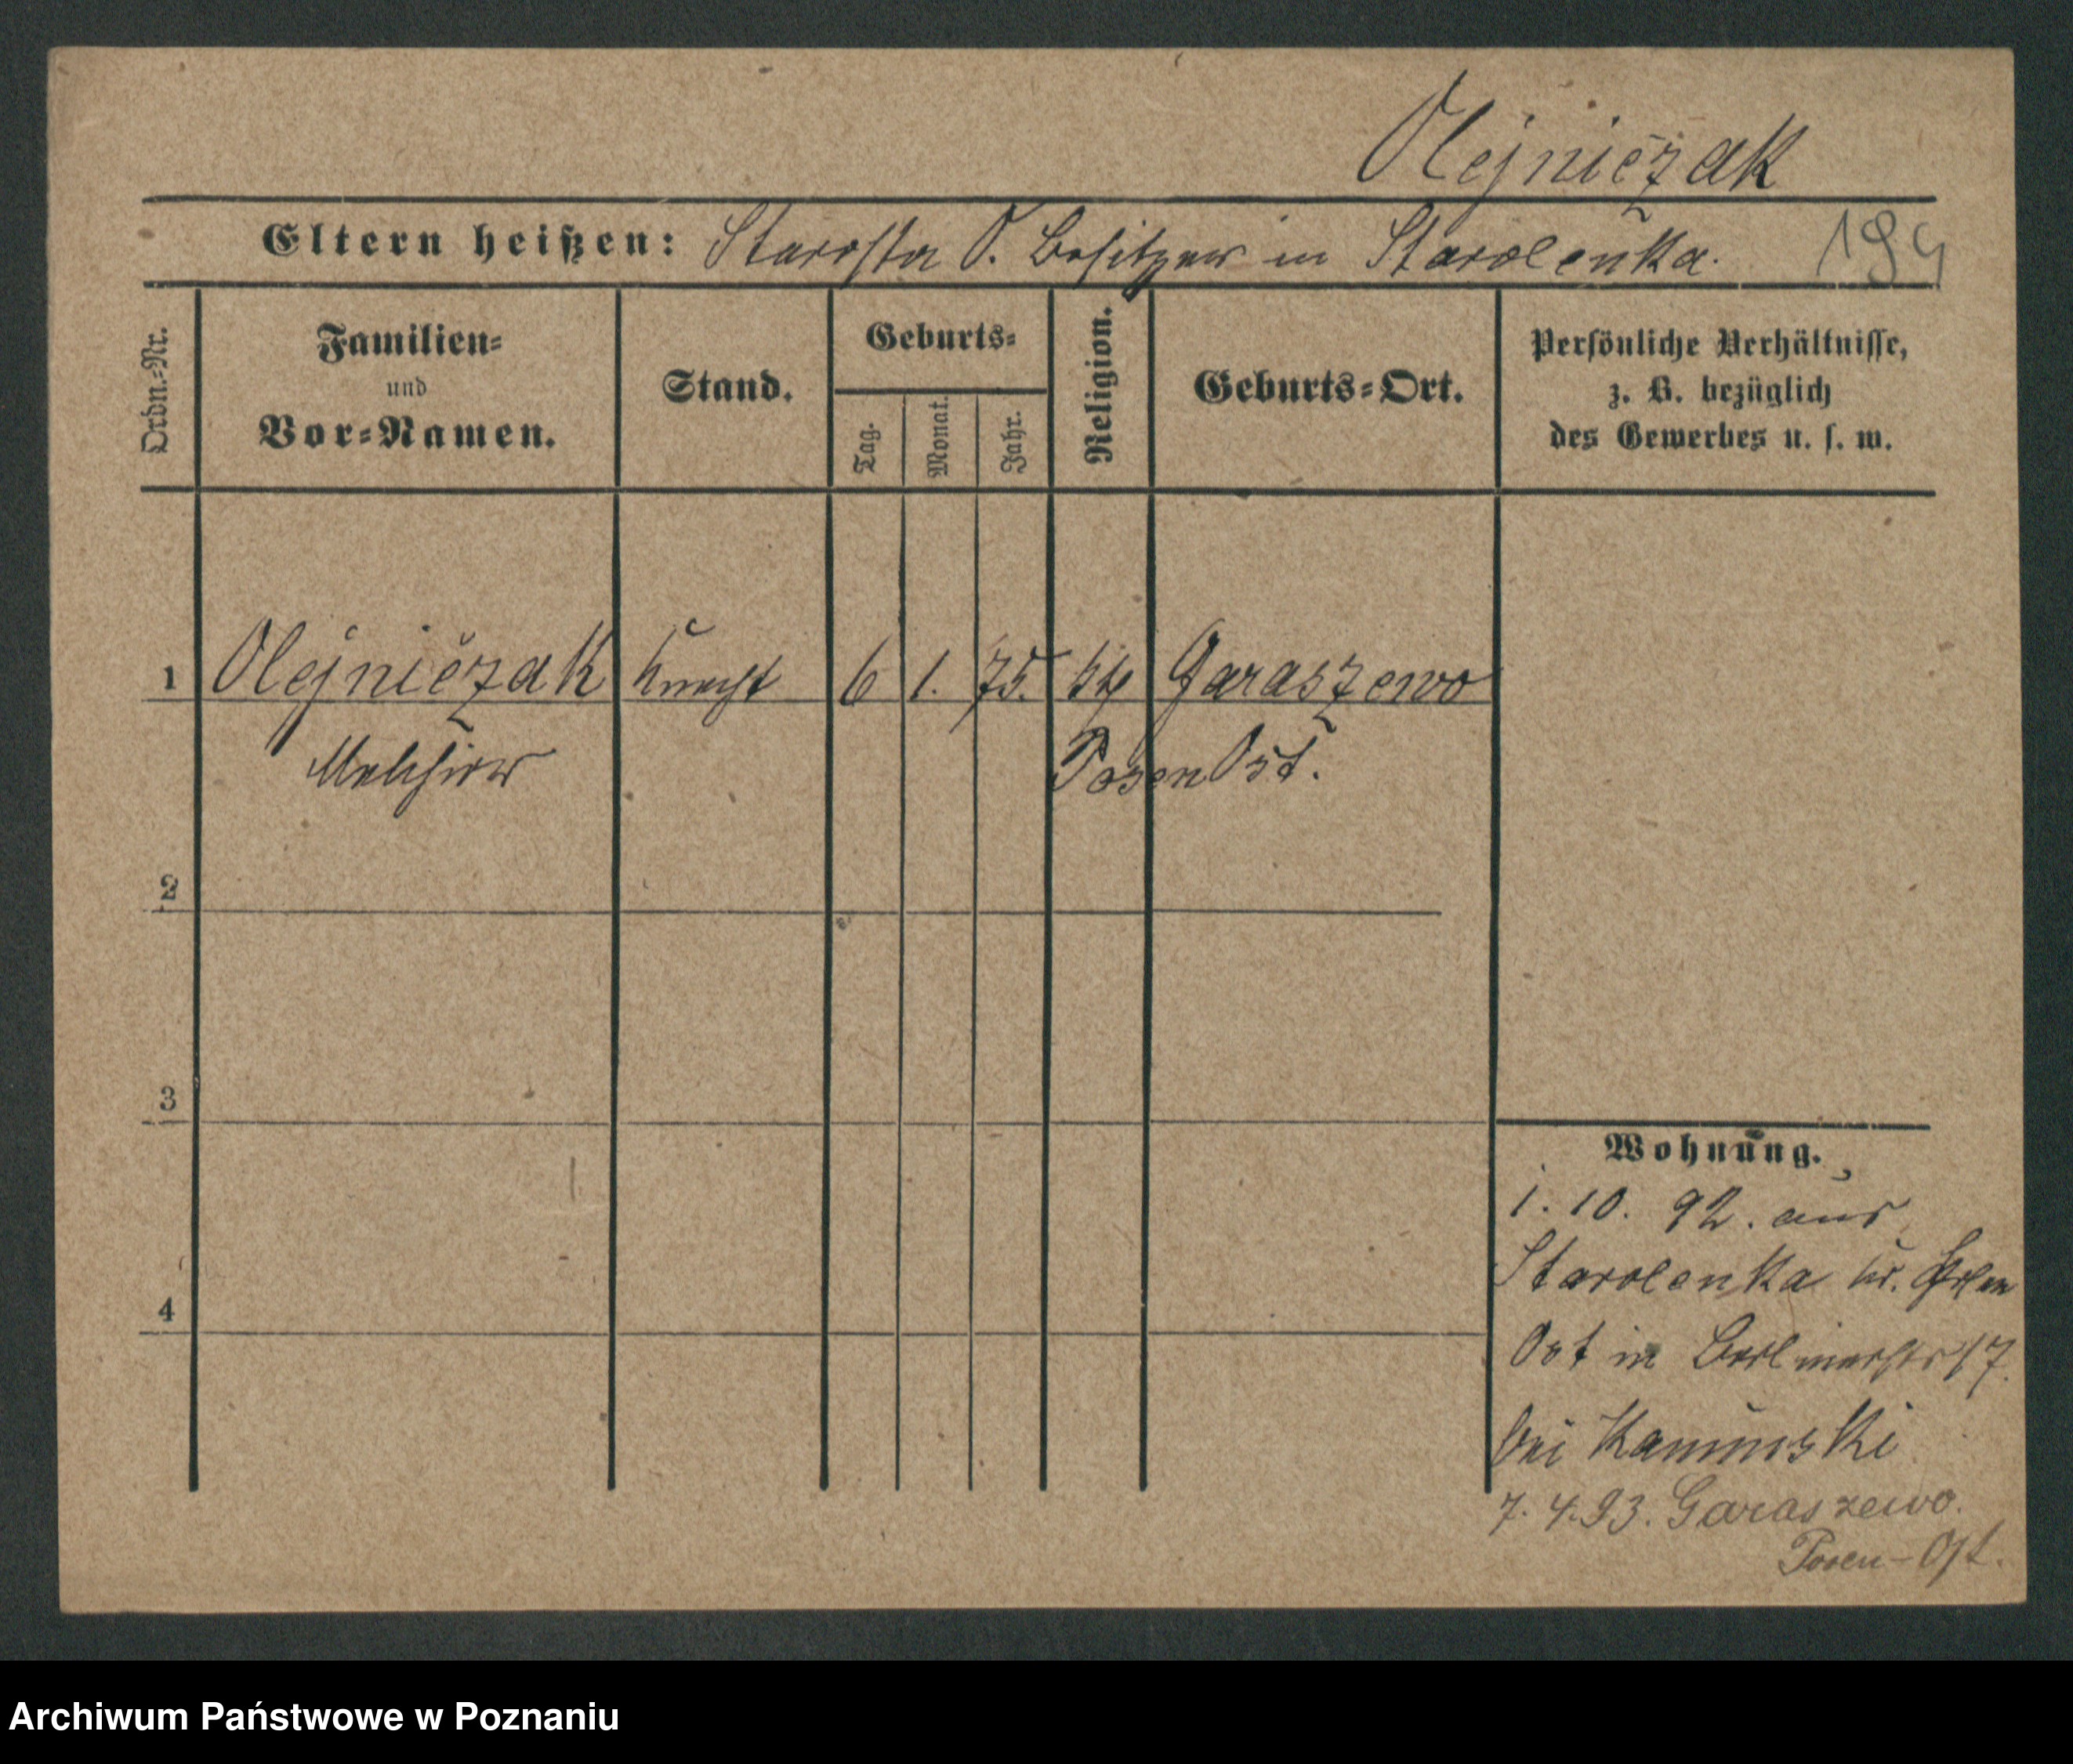 Olejniczak
Eltern heißen: Starosta O. Besitzer in Starolenka. 194
Ordn.-Nr.
Familien-
und
Vor-Namen.
Stand.
Geburts-
Tag.
Monat.
Jahr.
Religion.
Geburts-Ort.
Persönliche Verhältnisse,
z. B. bezüglich
des Gewerbes u. s. w.
1 Olejniczak Knecht 6 1. 75. kth Garaszewo
Melchior Posen Ost.
2
3
4
Wohnung.
1. 10. 92. aus
Starolenka kr. Posen
Ost in Berlinerstr 17.
bei Kaminski
7. 4. 93. Garaszewo.
Posen-Ost.
Archiwum Państwowe w Poznaniu